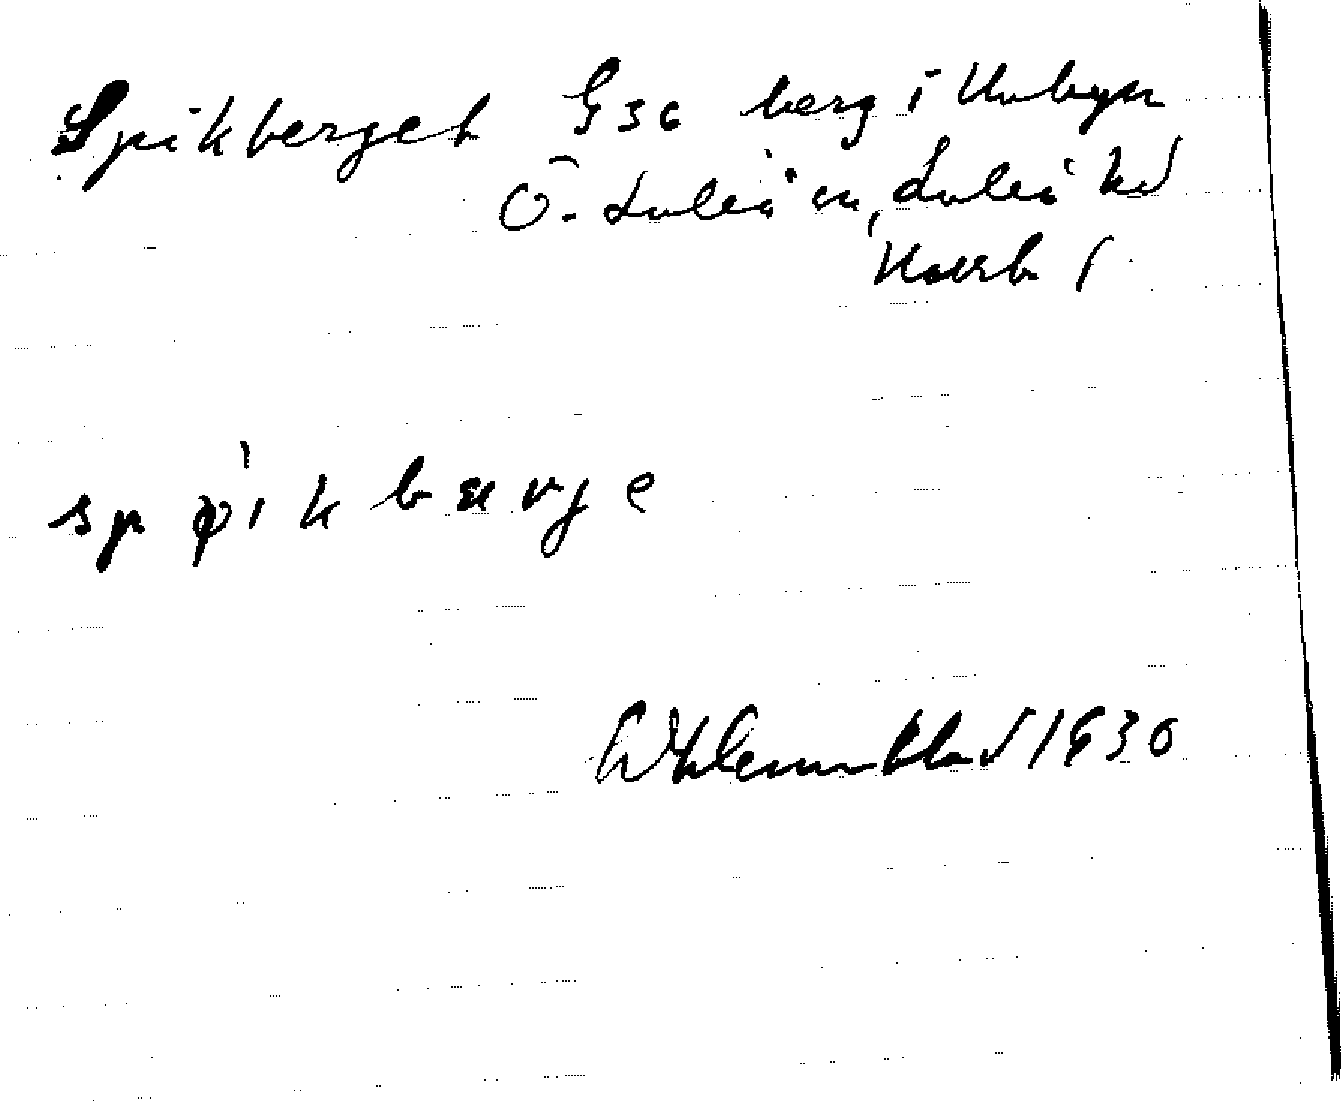 Spikberget G36 berg i Unbyn
Ö. Luleå sn, Luleå hd
Norrb l
spøikbærje
Wklennblad 1930